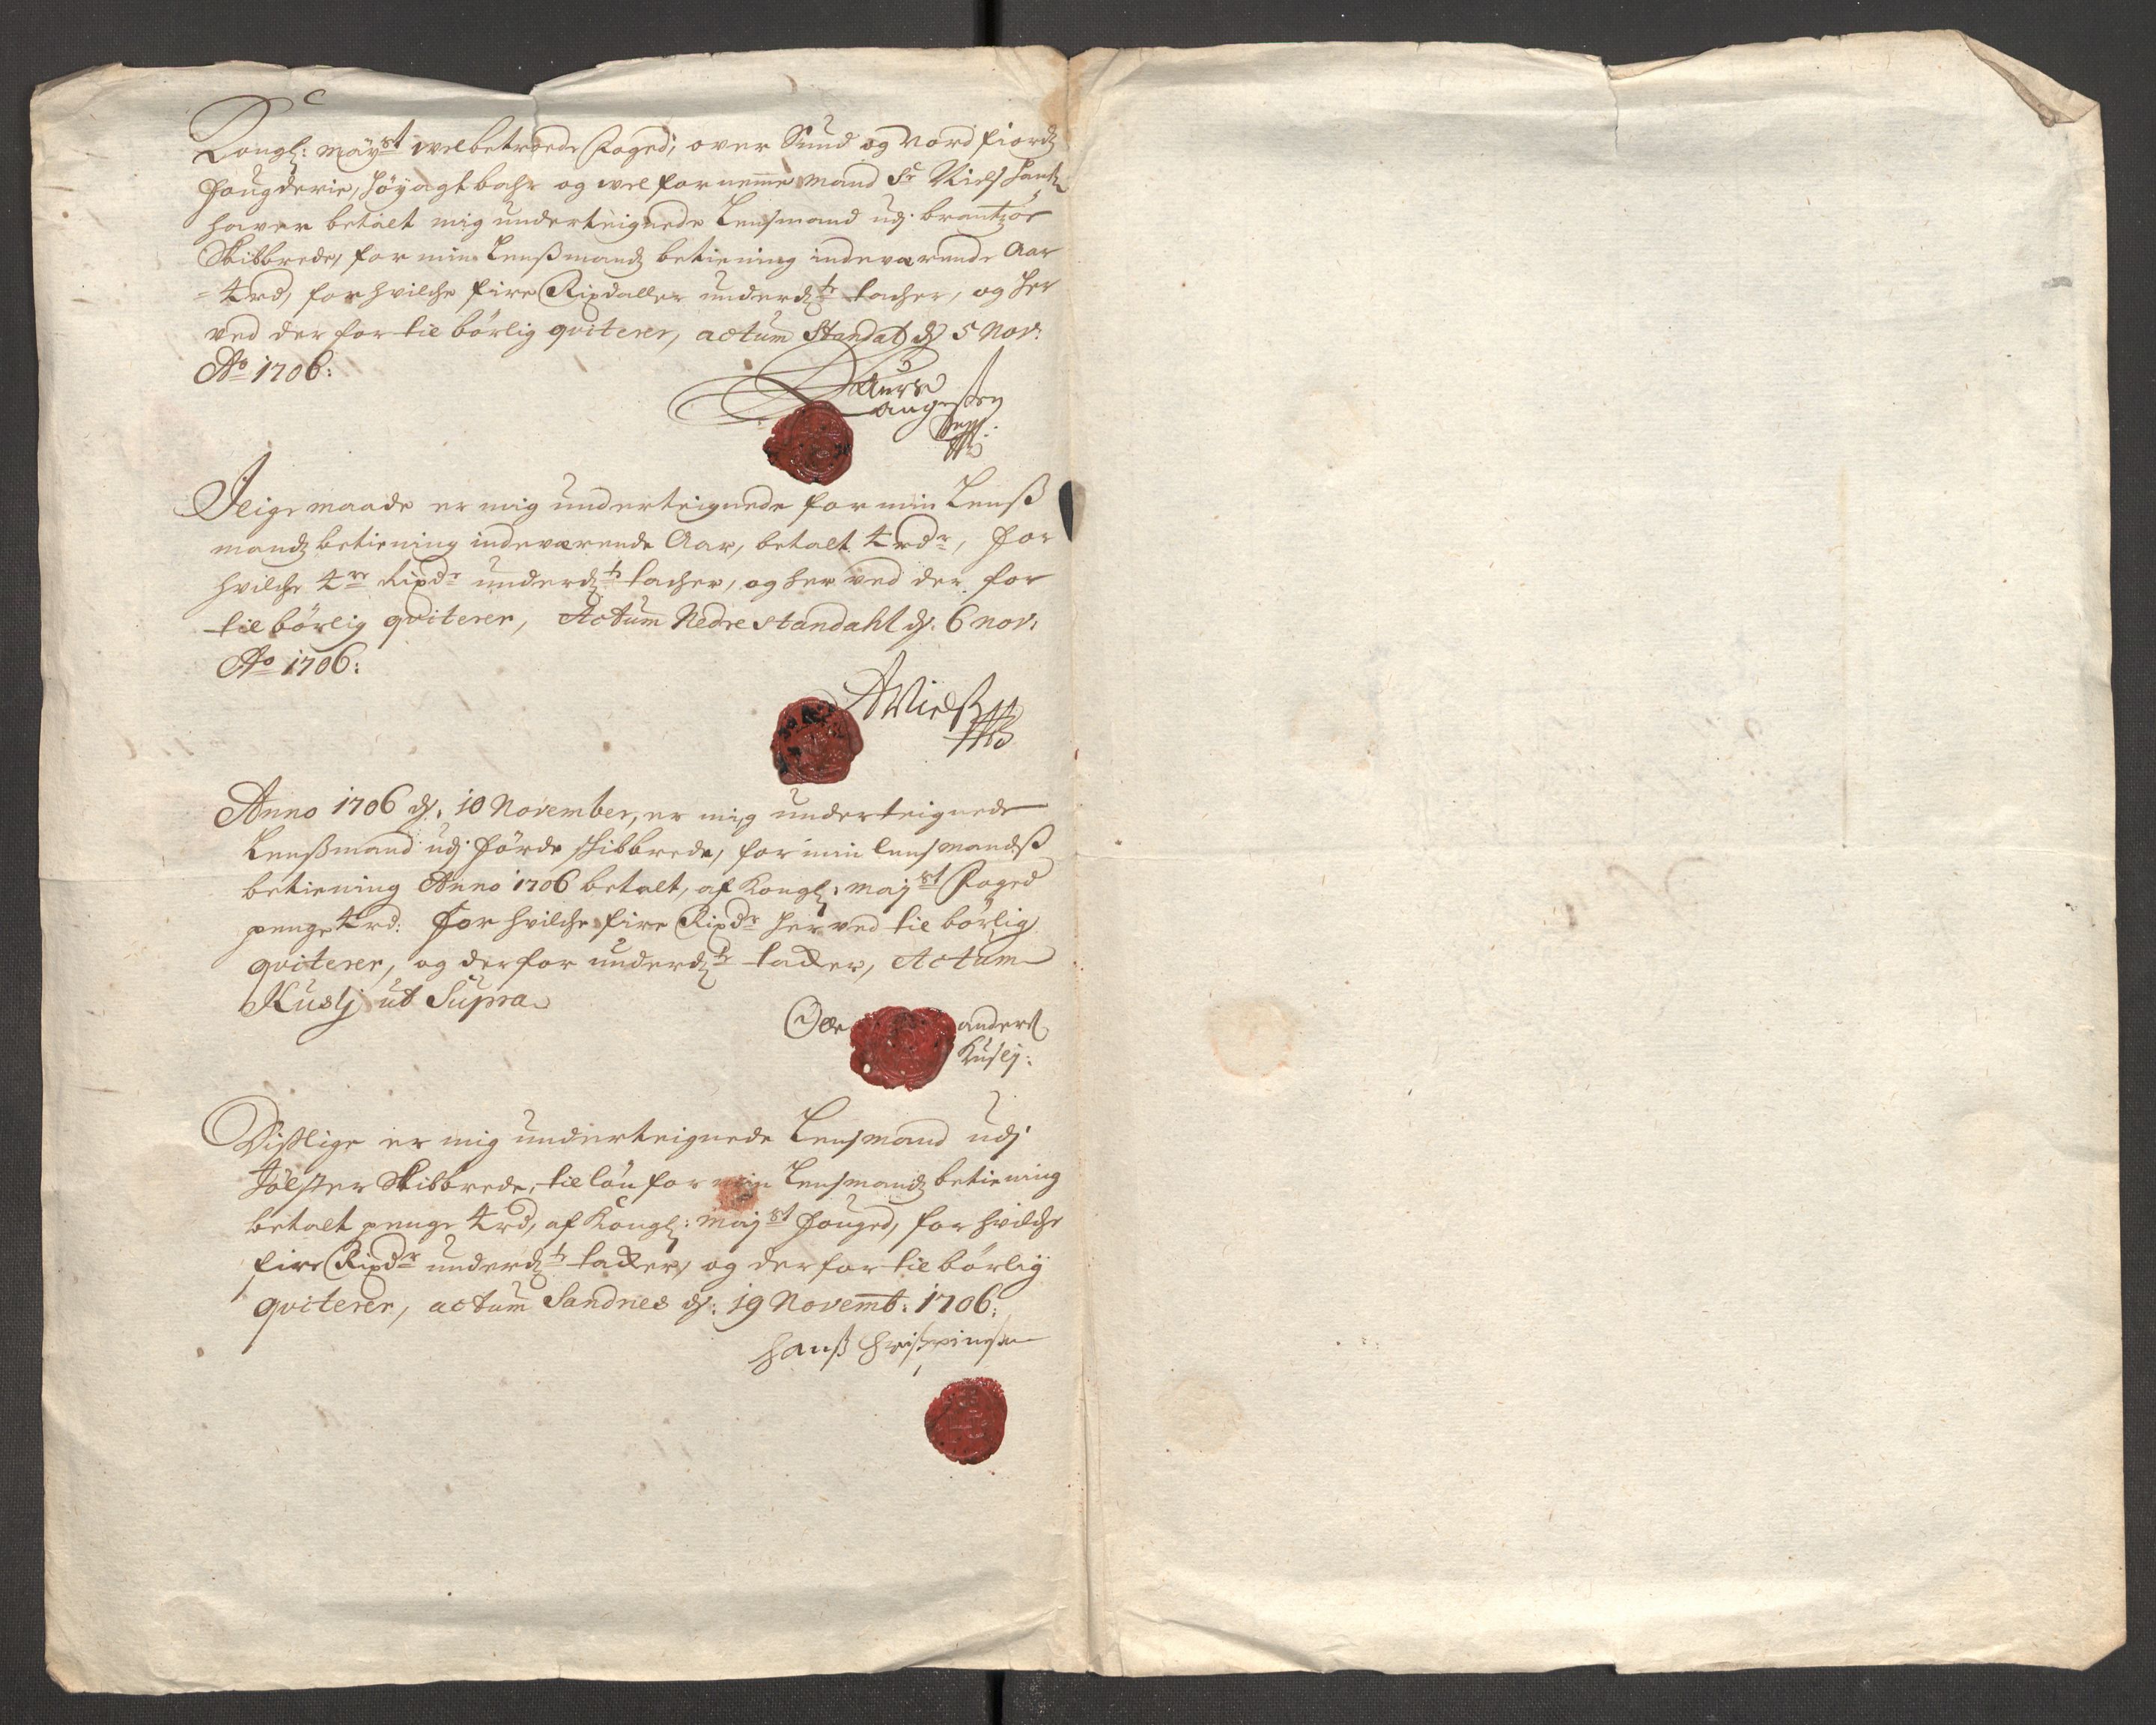 Kongl: mayst welbetroede Foged, over Sund og Nord fiords
Fougderie, Høyagtbahr og wel fornemme Mand Sr Niels
haver betalt mig underteignede Lensmand udj
Skibbrede, for min Lenßmands betiening indeværende Aar
4 rd, for hvilche fire Rixdaller underdst tacher, og her
ved der for tilbørlig qviterer, actum Standal d 5 Nov:
Ao 1706:
Laurs
Augesten
Jligemaade er mig underteignede for min Lenß
mands betiening indeværende Aar, betalt 4 rdr, for
hvilche 4re Rixdr underdst tacher, og her ved der for
tilbørlig qviterer, Actum Nedre standahl d. 6 nov:
Ao 1706:
ANielß
Anno 1706 d. 10 November, er mig underteignede
Lenßmand udj Førde skibbrede, for min lensmandß
betiening Anno 1706 betalt, af Kongl: mayst Foged
penge 4 rd: for hvilche fire Rixdr her ved tilbørlig
qviterer, og derfor underdst tacker, Actum
Kuslj ut Supra
Ole anders
Kuslj:
Dislige er mig underteignede Lensmand udj
Jølster Skibbrede, til løn for min Lensmands betiening
betalt penge 4 rd, af Kongl: Mayst Fouged, for hvilche
fire Rixdr underdst tacker, og derfor tilbørlig
qviterer, actum Sandnes d: 19 Novemb: 1706:
Hanß